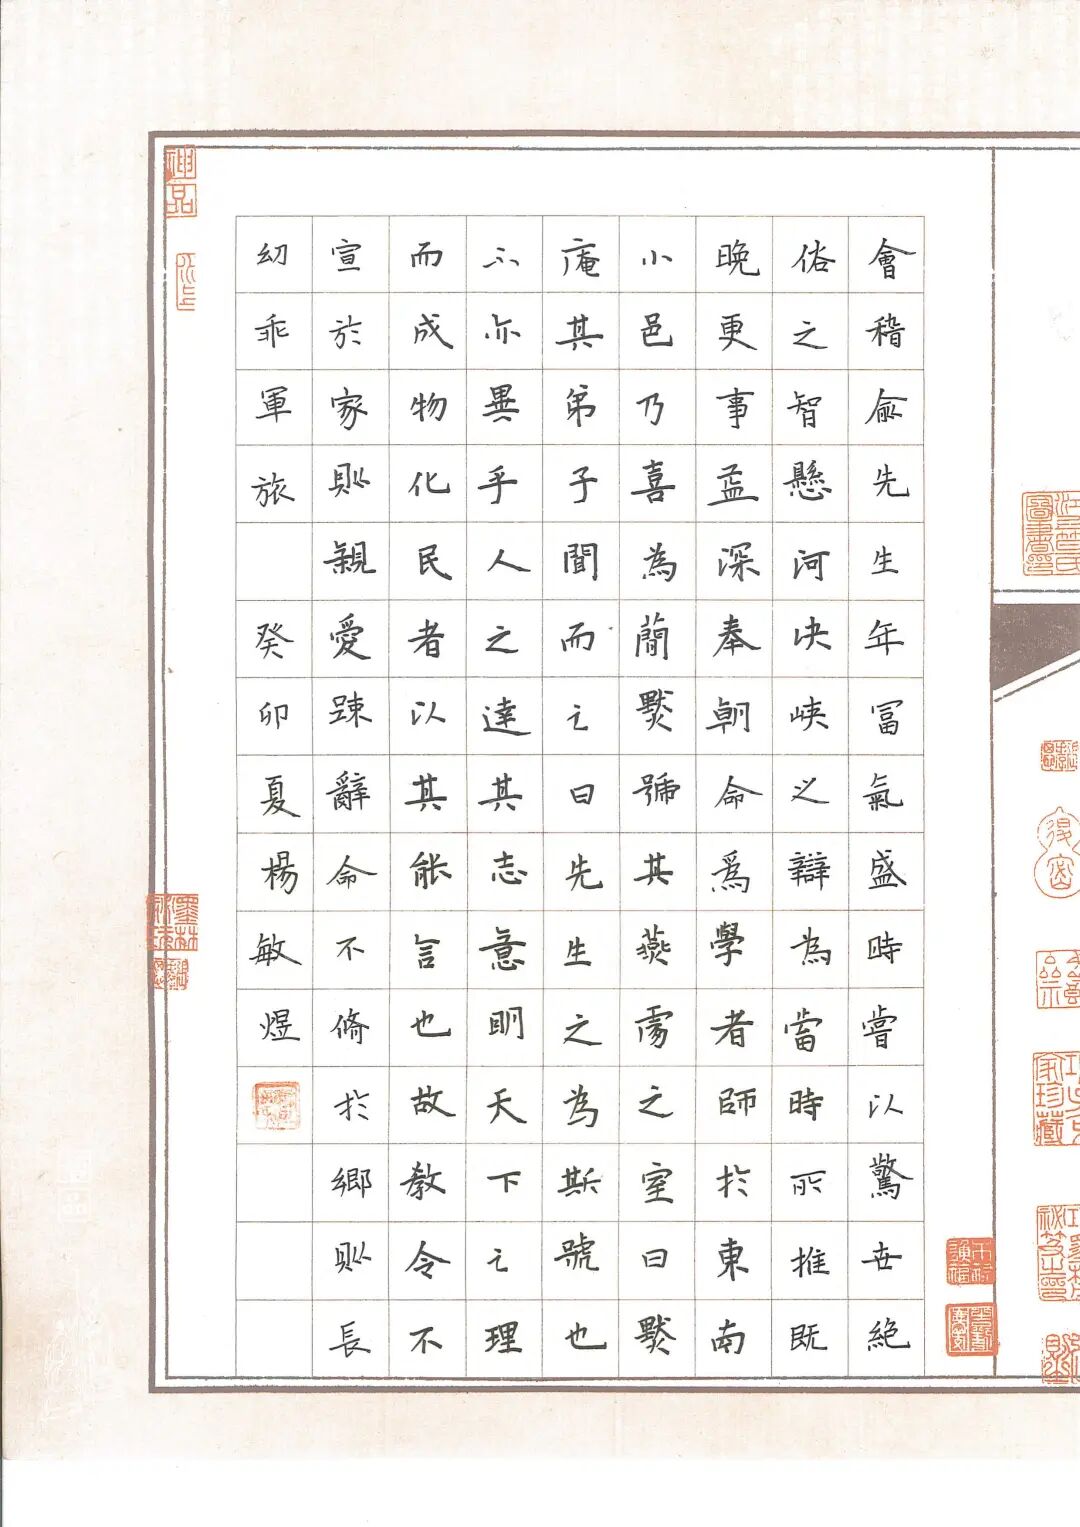 會稽俞先生年冨氣盛時嘗以驚世絕
俗之智懸河决峡之辯為當時所推既
晚更事益深奉朝命爲學者師於東南
小邑乃喜為蕳黙號其燕處之室曰黙
庵其弟子聞而之曰先生之為斯號也
不亦異乎人之達其志意明天下之理
而成物化民者以其能言也故教令不
宣於家則親愛踈辭命不脩於鄉則長
幼乖軍旅
癸卯夏楊敏煜
神品